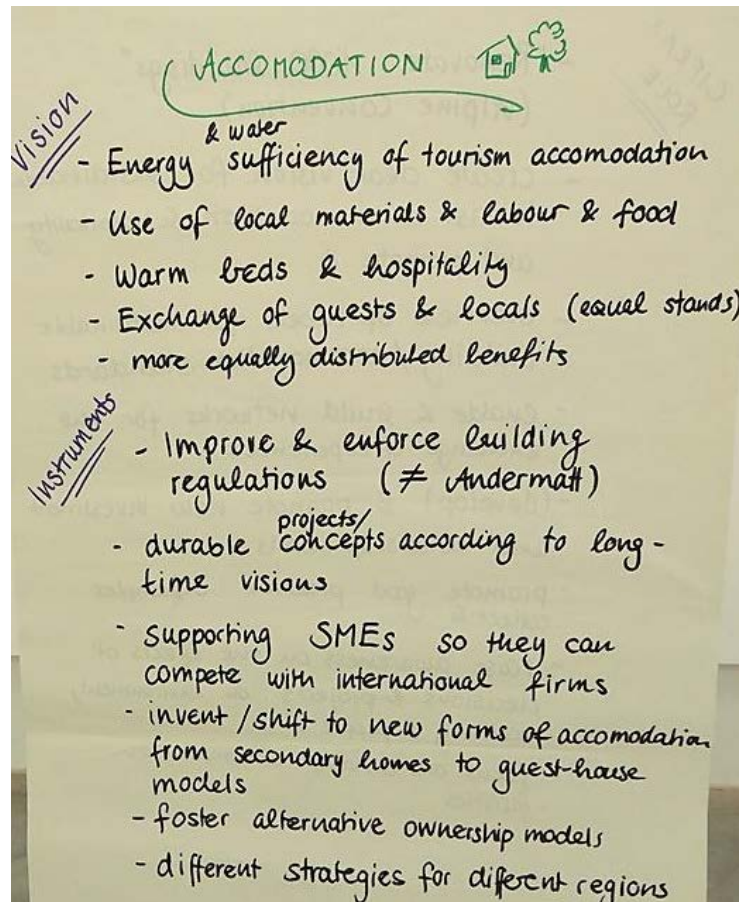 ACCOMODATION
Vision
& water
- Energy sufficiency of tourism accomodation
- Use of local materials & labour & food
- Warm beds & hospitality
- Exchange of guests & locals (equal stands)
- more equally distributed benefits
Instruments
- Improve & enforce building
regulations (≠ Andermatt)
projects/
- durable concepts according to long-
time visions
- supporting SMEs so they can
compete with international firms
- invent/shift to new forms of accomodation
from secondary homes to guest-house
models
- foster alternative ownership models
- different strategies for different regions